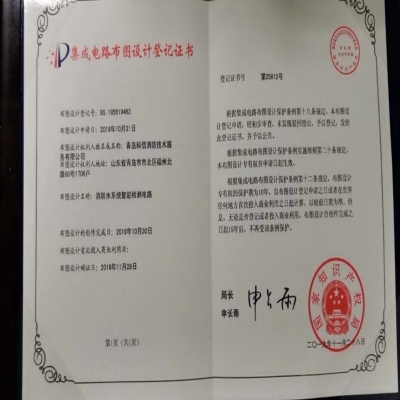 集成电路布图设计登记证书
布图设计登记号：BS.195619463
布图设计申请日：2019年10月31日
布图设计权利人姓名或名称：青岛科信消防技术服
务有限公司
布图设计权利人地址：山东省青岛市市北区福州北
路90号1706户
布图设计名称：消防水系统智能检测电路
布图设计的创作完成日：2019年10月30日
布图设计首次投入商业利用日：
布图设计颁证日：2019年11月28日
第1页（共1页）
登记证书号 第25012号
根据集成电路布图设计保护条例第十八条规定，本布图
设计登记申请，经初步审查，未发现驳回理由，予以登记，发给
此登记证书，并予以公告。
根据集成电路布图设计保护条例实施细则第二十条规定，
本布图设计专有权自申请日起生效。
根据集成电路布图设计保护条例第十二条规定，布图设计
专有权的保护期为10年，自布图设计登记申请之日或者在世界
任何地方首次投入商业利用之日起计算，以较前日期为准。但
是，无论是否登记或者投入商业利用，布图设计自创作完成之
日起15年后，不再受该条例保护。
局长
申长雨
国家知识产权局
二〇一九年十一月二十八日